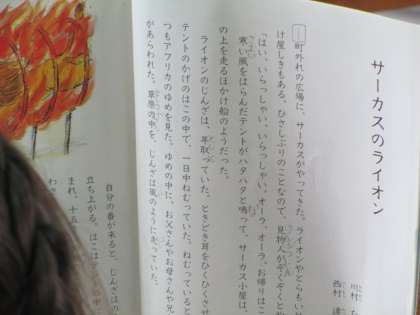 サーカスのライオン
川村 た
西村 達
町外れの広場に、サーカスがやってきた。ライオンやとらもい
け屋しきもある。ひさしぶりのことなので、見物人がぞくぞくと
「はい、いらっしゃい、いらっしゃい。オーラ、オーラ、お帰りはこ
寒い風をはらんだテントがハタハタと鳴って、サーカス小屋は、
の上を走るほかけ船のようだった。
ライオンのじんざは、年取っていた。ときどき耳をひくひくさせ
テントのかげのはこの中で、一日中ねむっていた。ねむっていると
つもアフリカのゆめを見た。ゆめの中に、お父さんやお母さんや兄
があらわれた。草原の中を、じんざは風のように走っていた。
自分の番が来ると、じんざは
立ち上がる。はこはテントの中
まれ、十五